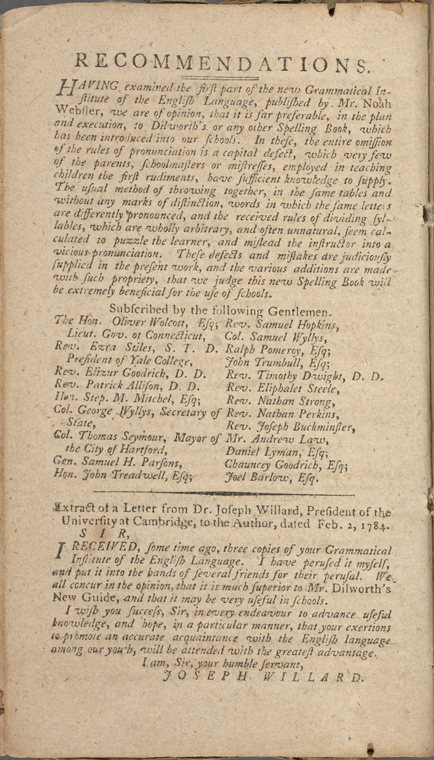 RECOMMENDATIONS.
HAVING examined the firſt part of the new Grammatical In-
ſtitute of the Engliſh Language, publiſhed by Mr. Noah
Webſter, we are of opinion, that it is far preferable, in the plan
and execution, to Dilworth's or any other Spelling Book, which
has been introduced into our ſchools. In theſe, the entire omiſſion
of the rules of pronunciation is a capital defect, which very few
of the parents, ſchoolmaſters or miſtreſſes, employed in teaching
children the firſt rudiments, have ſufficient knowledge to ſupply.
The uſual method of throwing together, in the ſame tables and
without any marks of diſtinction, words in which the ſame letters
are differently pronounced, and the received rules of dividing ſyl-
lables, which are wholly arbitrary, and often unnatural, ſeem cal-
culated to puzzle the learner, and miſlead the inſtructor into a
vicious pronunciation. Theſe defects and miſtakes are judiciouſly
ſupplied in the preſent work, and the various additions are made
with ſuch propriety, that we judge this new Spelling Book will
be extremely beneficial for the uſe of ſchools.
Subſcribed by the following Gentlemen.
The Hon. Oliver Wolcott, Eſq; Rev. Samuel Hopkins,
Lieut. Gov. of Connecticut, Col. Samuel Wyllys,
Rev. Ezra Stiles, S. T. D. Ralph Pomeroy, Eſq;
Preſident of Yale College, John Trumbull, Eſq;
Rev. Elizur Goodrich, D. D. Rev. Timothy Dwight, D. D.
Rev. Patrick Alliſon, D. D. Rev. Eliphalet Steele,
Hon. Step. M. Mitchel, Eſq; Rev. Nathan Strong,
Col. George Wyllys, Secretary of Rev. Nathan Perkins,
State, Rev. Joſeph Buckminſter,
Col. Thomas Seymour, Mayor of Mr. Andrew Law,
the City of Hartford, Daniel Lyman, Eſq;
Gen. Samuel H. Parſons, Chauncey Goodrich, Eſq;
Hon. John Treadwell, Eſq; Joel Barlow, Eſq.
Extract of a Letter from Dr. Joſeph Willard, Preſident of the
Univerſity at Cambridge, to the Author, dated Feb. 2, 1784.
SIR,
I RECEIVED, ſome time ago, three copies of your Grammatical
Inſtitute of the Engliſh Language. I have peruſed it myſelf,
and put it into the hands of ſeveral friends for their peruſal. We
all concur in the opinion, that it is much ſuperior to Mr. Dilworth's
New Guide, and that it may be very uſeful in ſchools.
I wiſh you ſucceſs, Sir, in every endeavour to advance uſeful
knowledge, and hope, in a particular manner, that your exertions
to promote an accurate acquaintance with the Engliſh language
among our youth, will be attended with the greateſt advantage.
I am, Sir, your humble ſervant,
JOSEPH WILLARD.